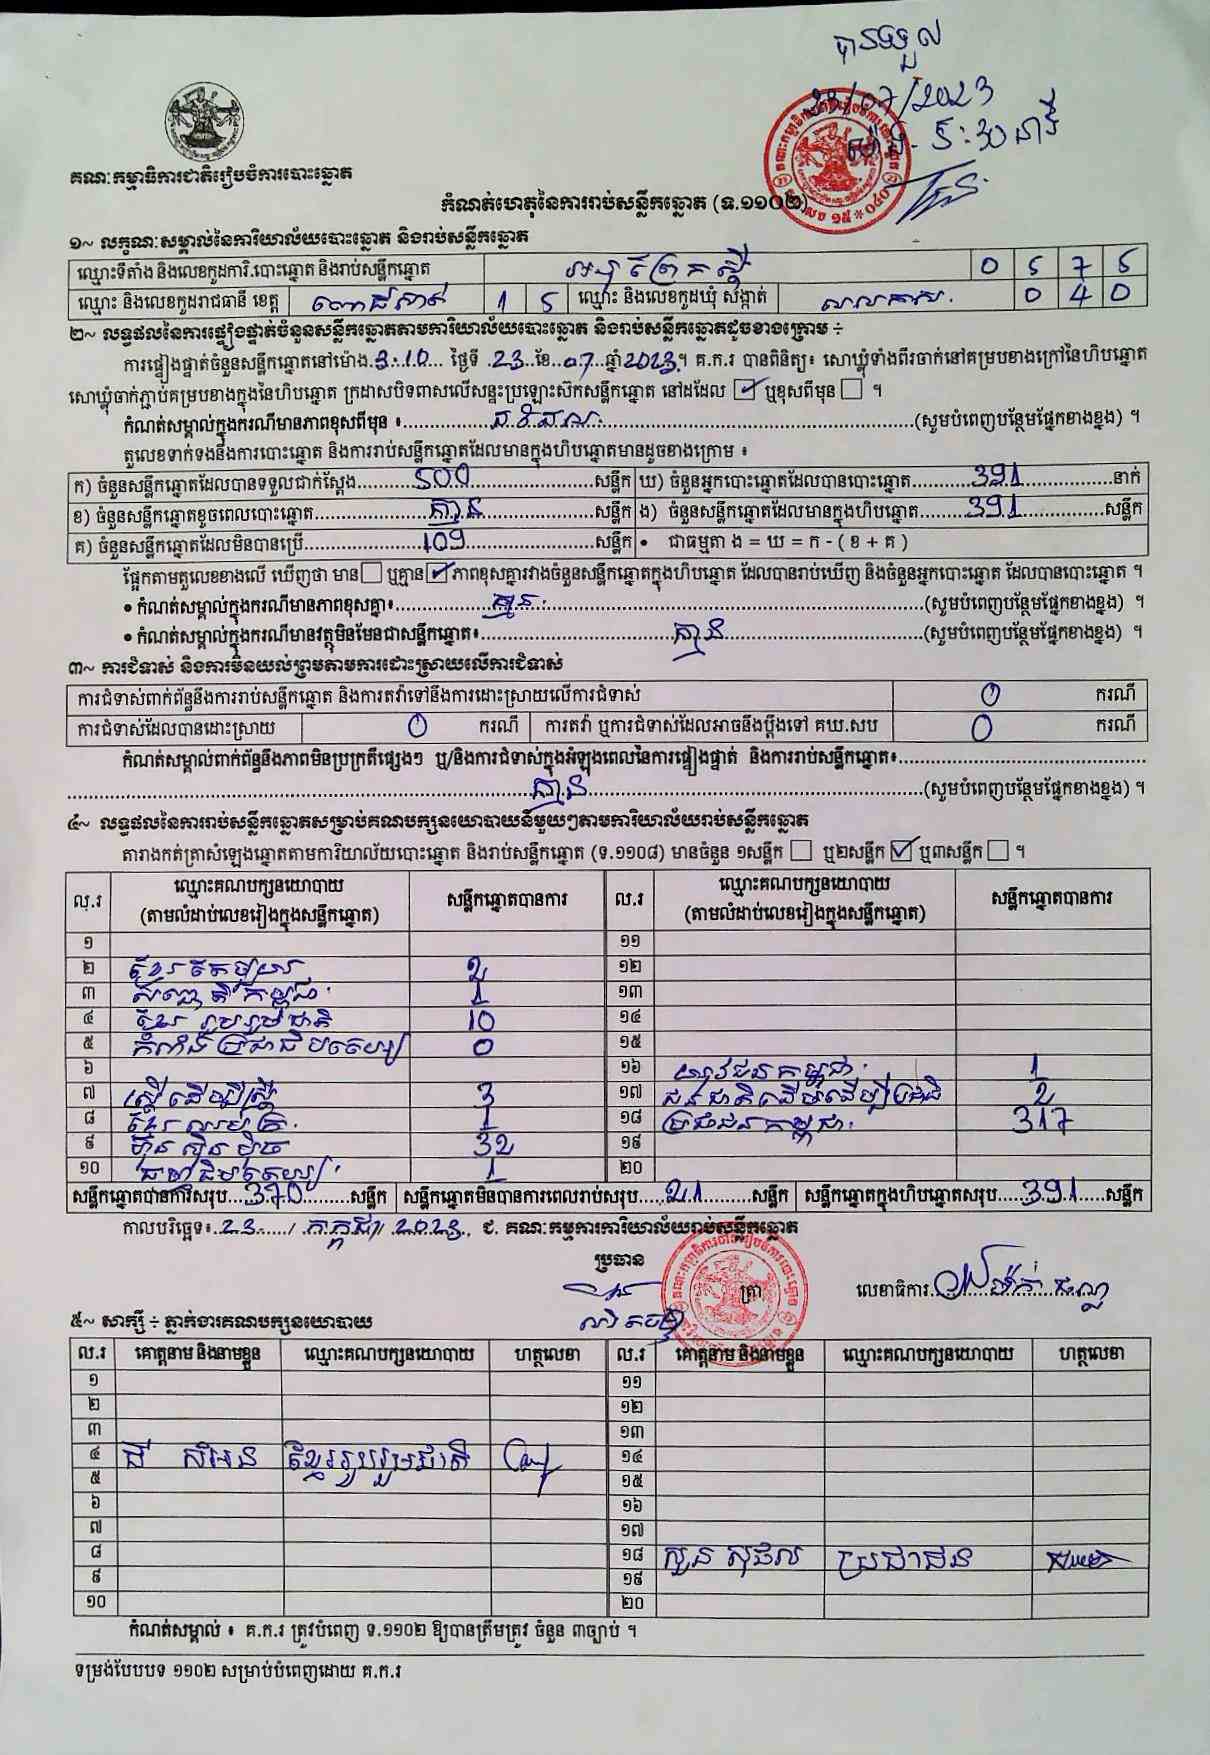 បានទទួល
23/07/2023
គណៈកម្មាធិការជាតិរៀបចំការបោះឆ្នោត
កំណត់ហេតុនៃការរាប់សន្លឹកឆ្នោត (ទ.១១០២)
១~ លក្ខណៈសម្គាល់នៃការិយាល័យបោះឆ្នោត និងរាប់សន្លឹកឆ្នោត
ឈ្មោះទីតាំង និងលេខកូដការិ.បោះឆ្នោត និងរាប់សន្លឹកឆ្នោត 0 5 7 5
ឈ្មោះ និងលេខកូដរាជធានី ខេត្ត ពោធិ៍សាត់ 1 5 ឈ្មោះ និងលេខកូដឃុំ សង្កាត់ 0 4 0
២~ លទ្ធផលនៃការផ្ទៀងផ្ទាត់ចំនួនសន្លឹកឆ្នោតតាមការិយាល័យបោះឆ្នោត និងរាប់សន្លឹកឆ្នោតដូចខាងក្រោម ÷
ការផ្ទៀងផ្ទាត់ចំនួនសន្លឹកឆ្នោតនៅម៉ោង.3:10... ថ្ងៃទី .23..ខែ..07..ឆ្នាំ2023។ គ.ក.រ បានពិនិត្យ៖ សោឃ្លុំទាំងពីរចាក់នៅគម្របខាងក្រៅនៃហិបឆ្នោត
សោឃ្លុំចាក់ភ្ជាប់គម្របខាងក្នុងនៃហិបឆ្នោត ក្រដាសបិទពាសលើសន្ទះប្រឡោះស៊កសន្លឹកឆ្នោត នៅដដែល ☑ ឬខុសពីមុន ☐ ។
កំណត់សម្គាល់ក្នុងករណីមានភាពខុសពីមុន ៖........(សូមបំពេញបន្ថែមផ្នែកខាងខ្នង) ។
តួលេខទាក់ទងនឹងការបោះឆ្នោត និងការរាប់សន្លឹកឆ្នោតដែលមានក្នុងហិបឆ្នោតមានដូចខាងក្រោម ៖
ក) ចំនួនសន្លឹកឆ្នោតដែលបានទទួលជាក់ស្តែង.....500.....សន្លឹក ឃ) ចំនួនអ្នកបោះឆ្នោតដែលបានបោះឆ្នោត.....391.....នាក់
ខ) ចំនួនសន្លឹកឆ្នោតខូចពេលបោះឆ្នោត.....គ្មាន.....សន្លឹក ង) ចំនួនសន្លឹកឆ្នោតដែលមានក្នុងហិបឆ្នោត.....391.....សន្លឹក
គ) ចំនួនសន្លឹកឆ្នោតដែលមិនបានប្រើ.....109.....សន្លឹក • ជាធម្មតា ង = ឃ = ក - ( ខ + គ )
ផ្អែកតាមតួលេខខាងលើ ឃើញថា មាន☐ ឬគ្មាន☑ ភាពខុសគ្នារវាងចំនួនសន្លឹកឆ្នោតក្នុងហិបឆ្នោត ដែលបានរាប់ឃើញ និងចំនួនអ្នកបោះឆ្នោត ដែលបានបោះឆ្នោត ។
• កំណត់សម្គាល់ក្នុងករណីមានភាពខុសគ្នា៖.....គ្មាន.....(សូមបំពេញបន្ថែមផ្នែកខាងខ្នង) ។
• កំណត់សម្គាល់ក្នុងករណីមានវត្ថុមិនមែនជាសន្លឹកឆ្នោត៖.....គ្មាន.....(សូមបំពេញបន្ថែមផ្នែកខាងខ្នង) ។
៣~ ការជំទាស់ និងការមិនយល់ព្រមតាមការដោះស្រាយលើការជំទាស់
ការជំទាស់ពាក់ព័ន្ធនឹងការរាប់សន្លឹកឆ្នោត និងការតវ៉ាទៅនឹងការដោះស្រាយលើការជំទាស់ 0 ករណី
ការជំទាស់ដែលបានដោះស្រាយ 0 ករណី ការតវ៉ា ឬការជំទាស់ដែលអាចនឹងប្តឹងទៅ គឃ.សប 0 ករណី
កំណត់សម្គាល់ពាក់ព័ន្ធនឹងភាពមិនប្រក្រតីផ្សេងៗ ឬ/និងការជំទាស់ក្នុងអំឡុងពេលនៃការផ្ទៀងផ្ទាត់ និងការរាប់សន្លឹកឆ្នោត៖.....
.....គ្មាន.....(សូមបំពេញបន្ថែមផ្នែកខាងខ្នង) ។
៤~ លទ្ធផលនៃការរាប់សន្លឹកឆ្នោតសម្រាប់គណបក្សនយោបាយនីមួយៗតាមការិយាល័យរាប់សន្លឹកឆ្នោត
តារាងកត់ត្រាសំឡេងឆ្នោតតាមការិយាល័យបោះឆ្នោត និងរាប់សន្លឹកឆ្នោត (ទ.១១០៨) មានចំនួន ១សន្លឹក ☐ ឬ២សន្លឹក ☑ ឬ៣សន្លឹក ☐ ។
ល.រ ឈ្មោះគណបក្សនយោបាយ (តាមលំដាប់លេខរៀងក្នុងសន្លឹកឆ្នោត) សន្លឹកឆ្នោតបានការ ល.រ ឈ្មោះគណបក្សនយោបាយ (តាមលំដាប់លេខរៀងក្នុងសន្លឹកឆ្នោត) សន្លឹកឆ្នោតបានការ
១ ១១
២ ខ្មែរ 2 ១២
៣ កម្ពុជា 1 ១៣
៤ ខ្មែររួបរួមជាតិ 10 ១៤
៥ កំលាំងប្រជាធិបតេយ្យ 0 ១៥
៦ ១៦ យុវជនកម្ពុជា 1
៧ ស្ត្រីដើម្បីស្ត្រី 3 ១៧ ជនជាតិដើមដើម្បី 2
៨ ខ្មែរ 1 ១៨ ប្រជាជនកម្ពុជា 317
៩ ហ៊្វុនស៊ិនប៉ិច 32 ១៩
១០ ធម្មាធិបតេយ្យ 1 ២០
សន្លឹកឆ្នោតបានការសរុប...370...សន្លឹក សន្លឹកឆ្នោតមិនបានការពេលរាប់សរុប...21...សន្លឹក សន្លឹកឆ្នោតក្នុងហិបឆ្នោតសរុប...391...សន្លឹក
កាលបរិច្ឆេទ៖.23.../.កក្កដា/.2023., ជ. គណៈកម្មការការិយាល័យរាប់សន្លឹកឆ្នោត
ប្រធាន ត្រា លេខាធិការ
៥~ សាក្សី ÷ ភ្នាក់ងារគណបក្សនយោបាយ
ល.រ គោត្តនាម និងនាមខ្លួន ឈ្មោះគណបក្សនយោបាយ ហត្ថលេខា ល.រ គោត្តនាម និងនាមខ្លួន ឈ្មោះគណបក្សនយោបាយ ហត្ថលេខា
១ ១១
២ ១២
៣ ១៣
៤ ជី សំអែន ខ្មែររួបរួមជាតិ ១៤
៥ ១៥
៦ ១៦
៧ ១៧
៨ ១៨ សួន សុផល ប្រជាជន
៩ ១៩
១០ ២០
កំណត់សម្គាល់ ៖ គ.ក.រ ត្រូវបំពេញ ទ.១១០២ ឱ្យបានត្រឹមត្រូវ ចំនួន ៣ច្បាប់ ។
ទម្រង់បែបបទ ១១០២ សម្រាប់បំពេញដោយ គ.ក.រ